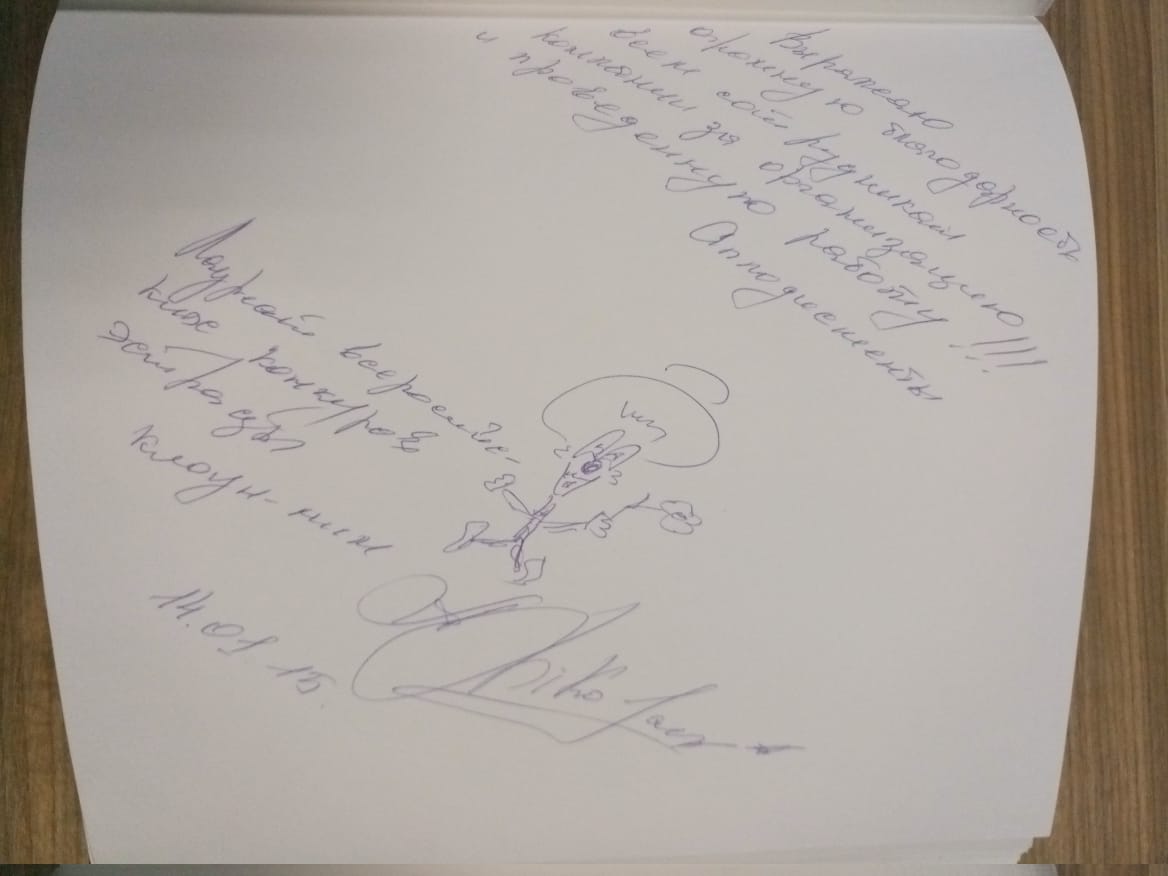 Выражаю
огромную благодарность
всем сотрудникам
компании за организацию
и проведенную работу !!!
Апподисменты
Лауреат всероссийс-
ких конкурсов
эстрады
клоун-мим
14.01.15.